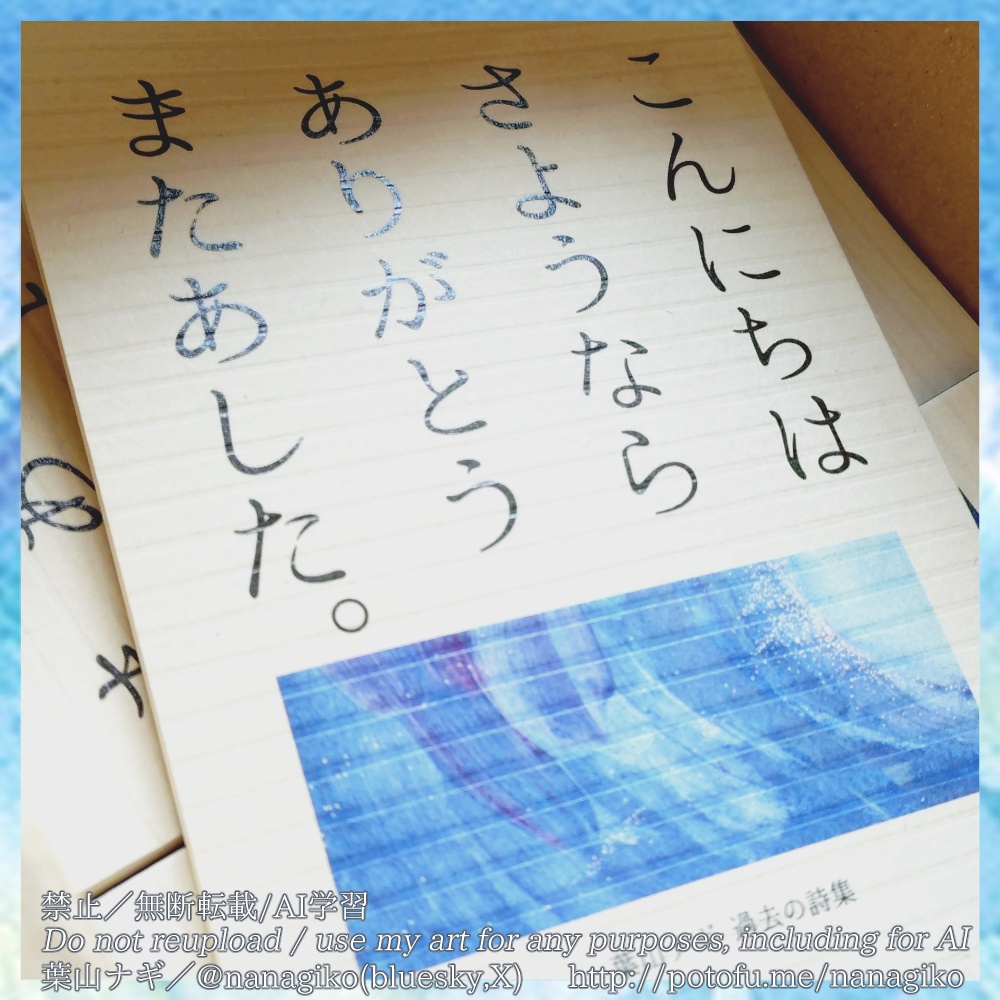 こんにちは
さようなら
ありがとう
またあした。
過去の詩集
禁止／無断転載/AI学習
Do not reupload / use my art for any purposes, including for AI
葉山ナギ／@nanagiko(bluesky,X)
http://potofu.me/nanagiko